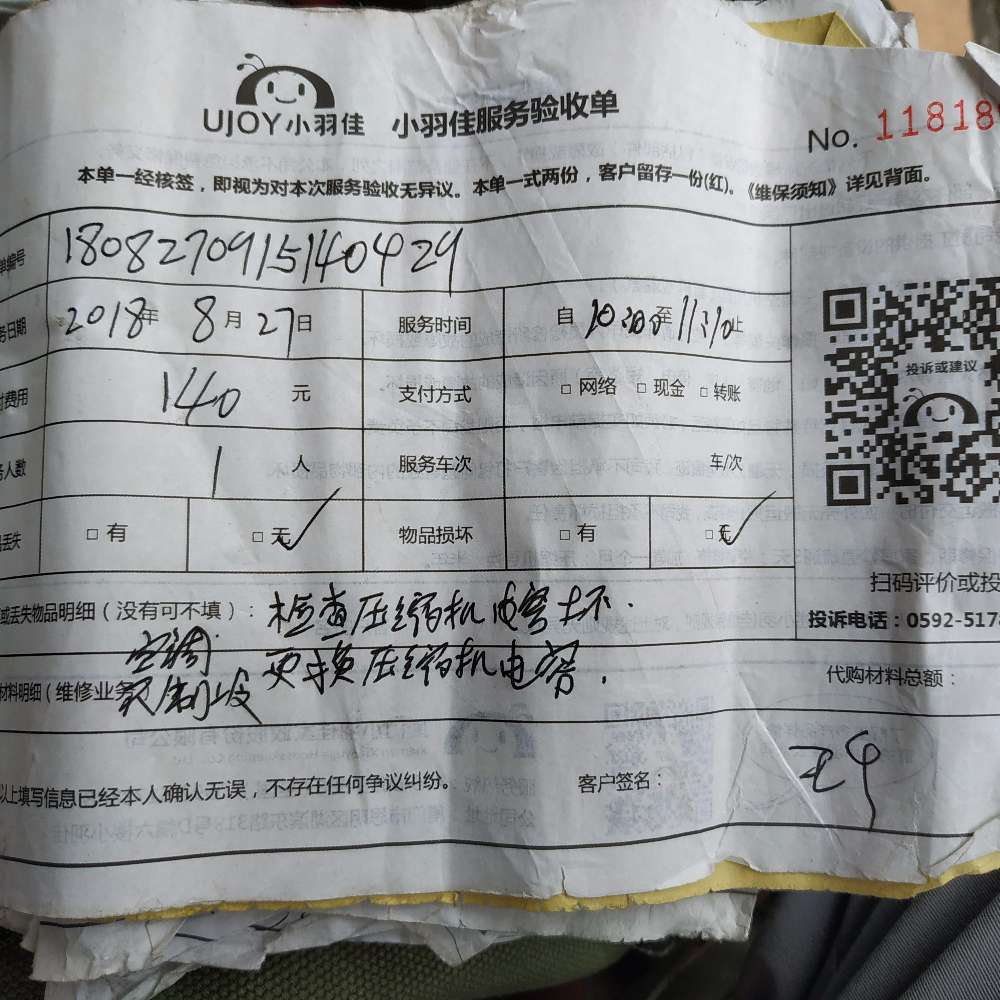 UJOY小羽佳 小羽佳服务验收单
No. 11818
本单一经核签，即视为对本次服务验收无异议。本单一式两份，客户留存一份(红)。《维保须知》详见背面。
单编号 1808270915140429
务日期 2018年 8月27日 服务时间 自 10:30至11:10止
费用 140 元 支付方式 □网络 □现金 □转账
务人数 1 人 服务车次 车/次
丢失 □有 □无✓ 物品损坏 □有 □无✓
投诉或建议
扫码评价或投
投诉电话：0592-517
或丢失物品明细（没有可不填）：检查压缩机电容坏.
空调 更换压缩机电容.
材料明细（维修业务
代购材料总额：
以上填写信息已经本人确认无误，不存在任何争议纠纷。 客户签名：